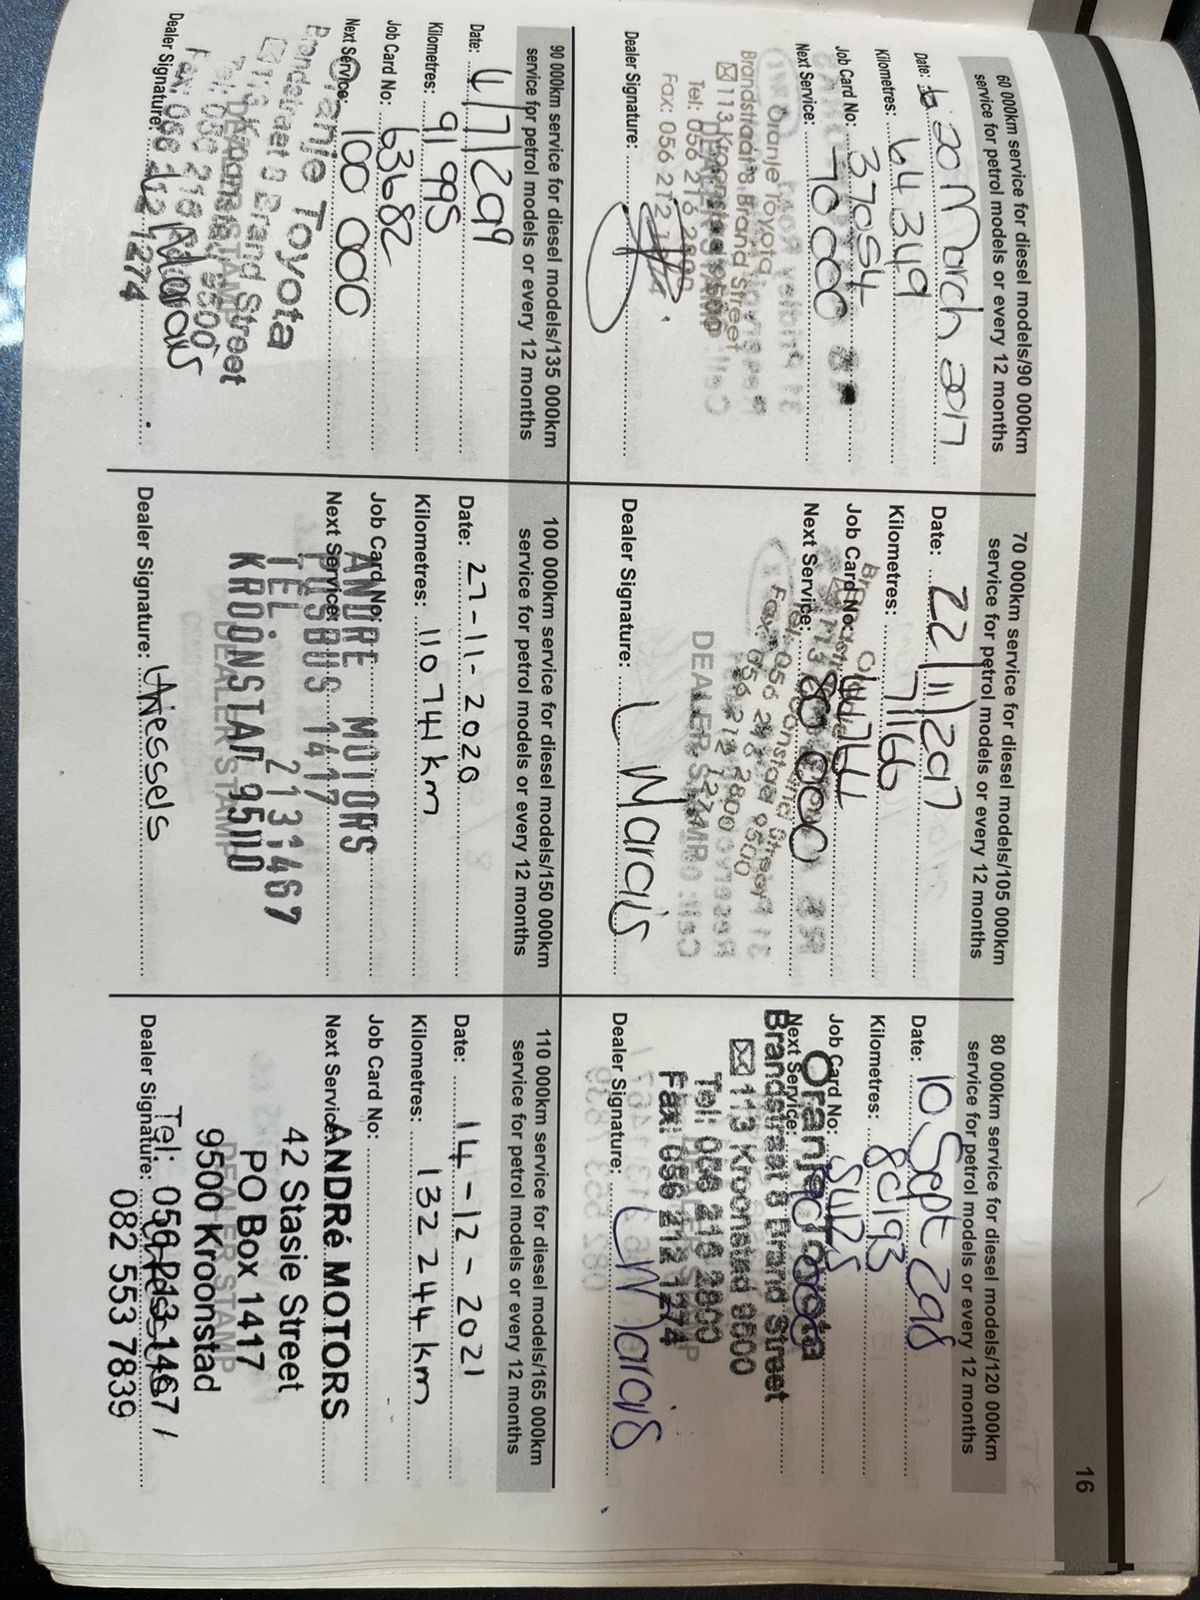 16
60 000km service for diesel models/90 000km
service for petrol models or every 12 months
Date: 20 March 2017
Kilometres: 64 349
Job Card No: 37054
Next Service: 70 000
Oranje Toyota
Brandstraat 8 Brand Street
113 Kroonstad 9500
Tel: 056 216 2800
Fax: 056 212 1274
Dealer Signature:
70 000km service for diesel models/105 000km
service for petrol models or every 12 months
Date: 22/11/2017
Kilometres: 71166
Job Card No: 44744
Next Service: 80 000
Tel: 056 216 2800
Fax: 056 212 1274
DEALER STAMP
Dealer Signature: L Marais
80 000km service for diesel models/120 000km
service for petrol models or every 12 months
Date: 10 Sept 2018
Kilometres: 80193
Job Card No: 54125
Next Service:
Oranje Toyota
Brandstraat 8 Brand Street
113 Kroonstad 9500
Tel: 056 216 2800
Fax: 056 212 1274
Dealer Signature: L Marais
90 000km service for diesel models/135 000km
service for petrol models or every 12 months
Date: 4/7/2019
Kilometres: 91 995
Job Card No: 63682
Next Service: 100 000
Oranje Toyota
Brandstraat 8 Brand Street
113 Kroonstad 9500
Tel: 056 216 2800
Fax: 056 212 1274
Dealer Signature: L Marais
100 000km service for diesel models/150 000km
service for petrol models or every 12 months
Date: 27-11-2020
Kilometres: 110 741 km
Job Card No:
Next Service:
ANDRE MOTORS
POSBUS 1417
TEL 2131467
KROONSTAD 9500
DEALER STAMP
Dealer Signature: Wessels
110 000km service for diesel models/165 000km
service for petrol models or every 12 months
Date: 14-12-2021
Kilometres: 132 244 km
Job Card No:
Next Service:
ANDRé MOTORS
42 Stasie Street
PO Box 1417
9500 Kroonstad
DEALER STAMP
Tel: 056 213 1467 /
082 553 7839
Dealer Signature: